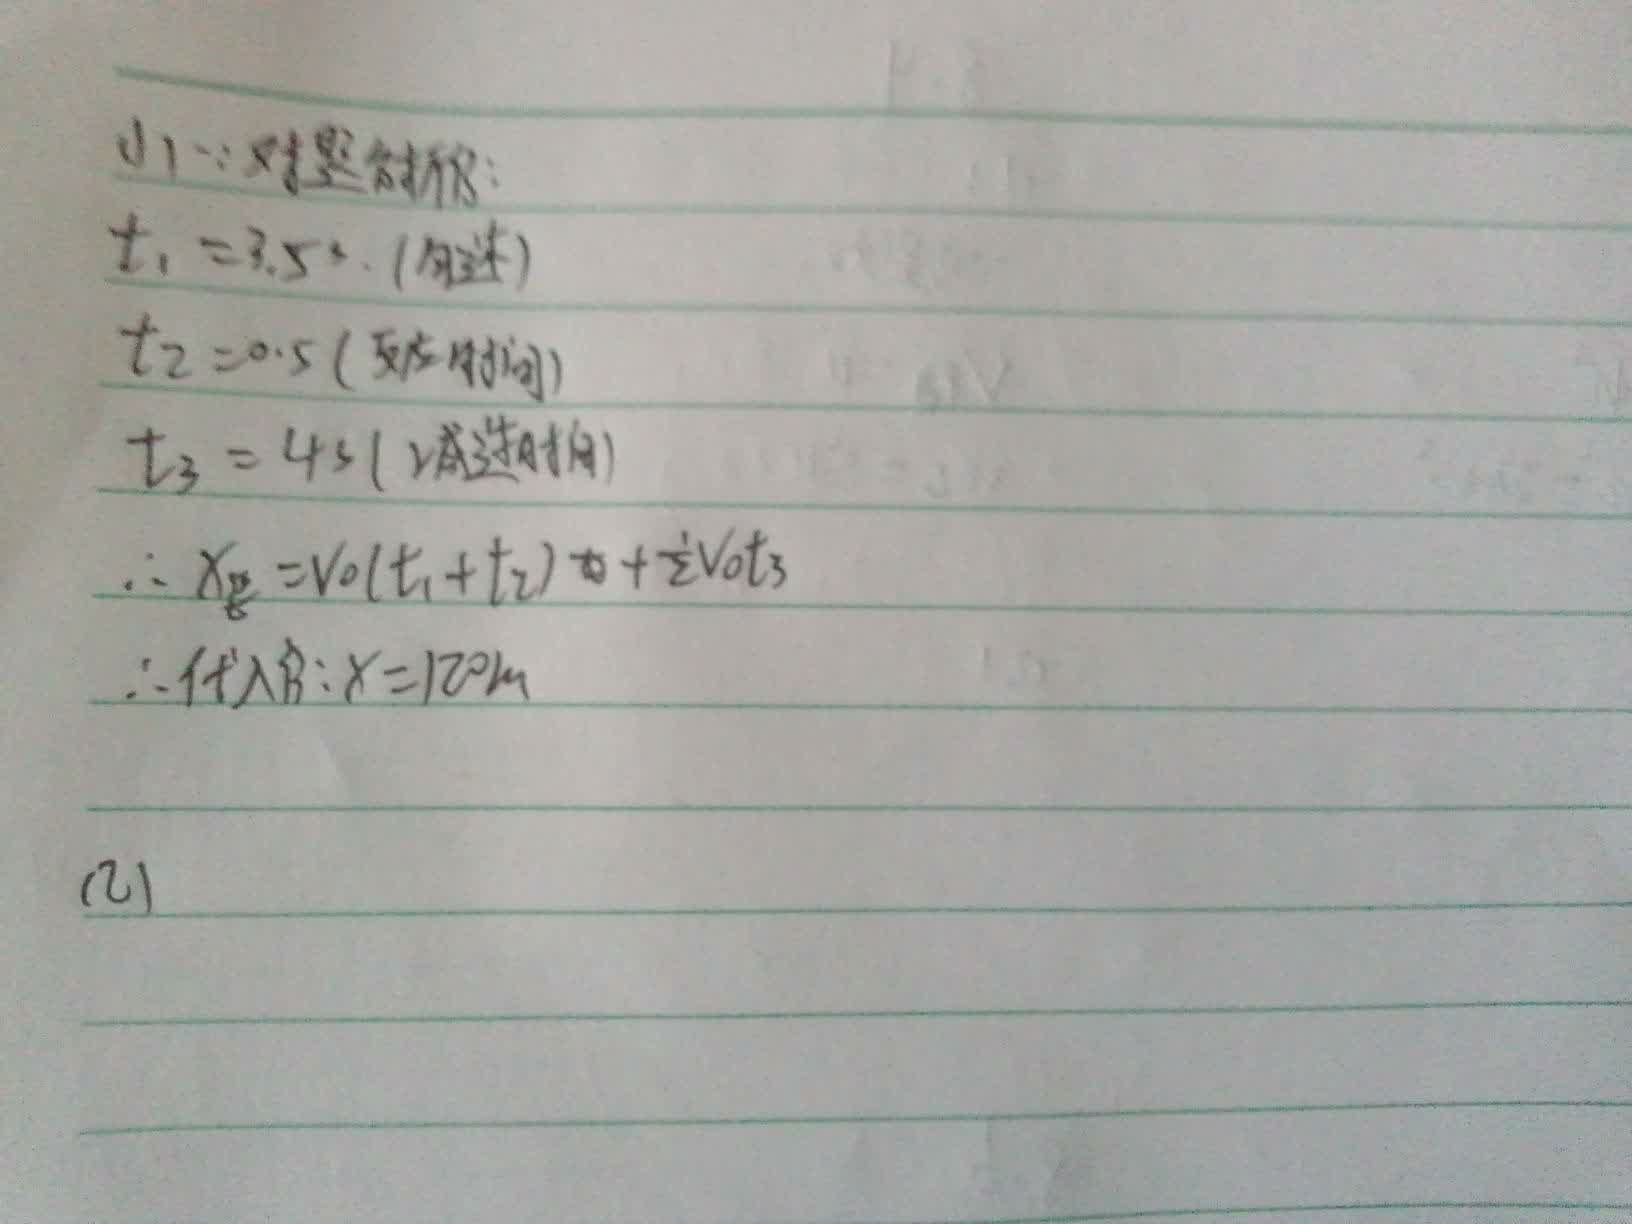 (1)∵对题分析:
t₁=3.5s.(匀速)
t₂=0.5(反应时间)
t₃=4s(减速时间)
∴X =V₀(t₁+t₂)+½V₀t₃
∴代入有:X=120m
(2)